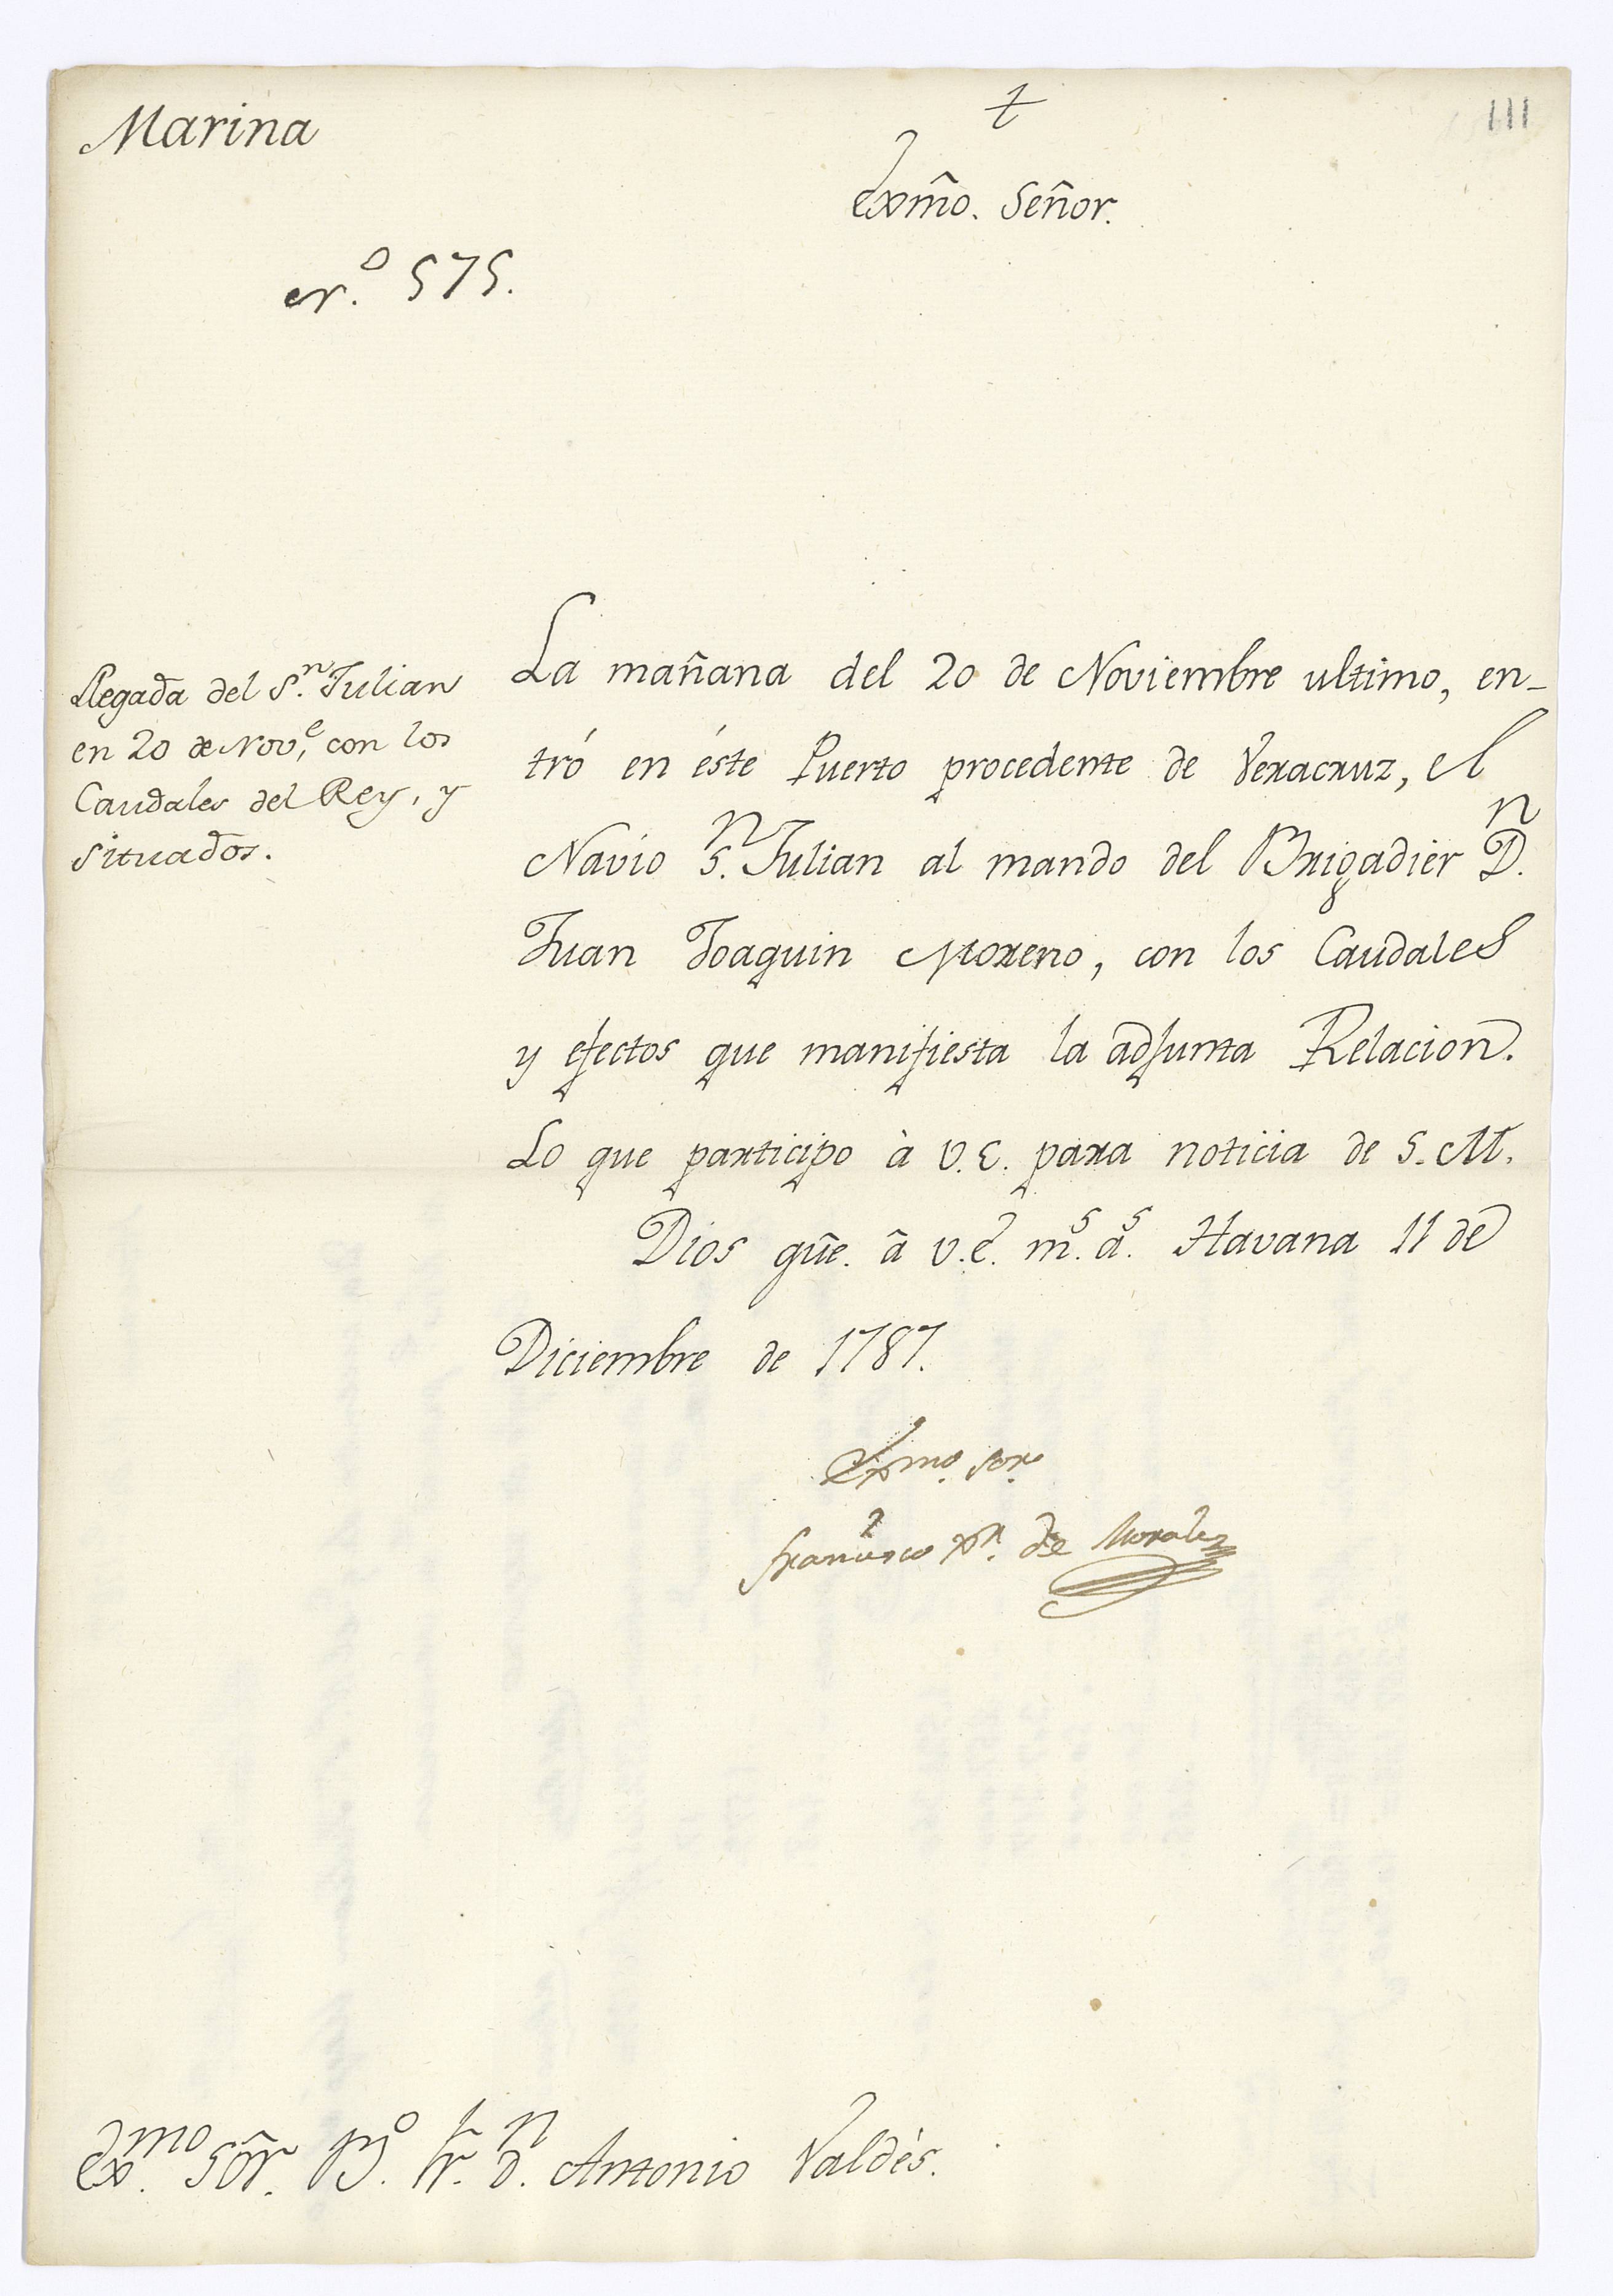 Marina
+
111
Exm̃o. Señor.
N.º 575.
Llegada del S.ⁿ Julian
en 20 de Nov.ᵉ, con los
Caudales del Rey, y
situados.
La mañana del 20 de Noviembre ultimo, en-
tró en éste Puerto procedente de Veracruz, el
Navio S.ⁿ Julian al mando del Brigadier D.ⁿ
Juan Joaquin Moreno, con los Caudales
y efectos que manifiesta la adjunta Relacion.
Lo que participo à V.E. para noticia de S.M.
Dios gũe. â V.E. m.ˢ a.ˢ Havana 11 de
Diciembre de 1787.
Exmo. Sor.
Francisco Xr. de Morales
Ex.ᵐᵒ Sõr. B.º Fr. D.ⁿ Antonio Valdès.